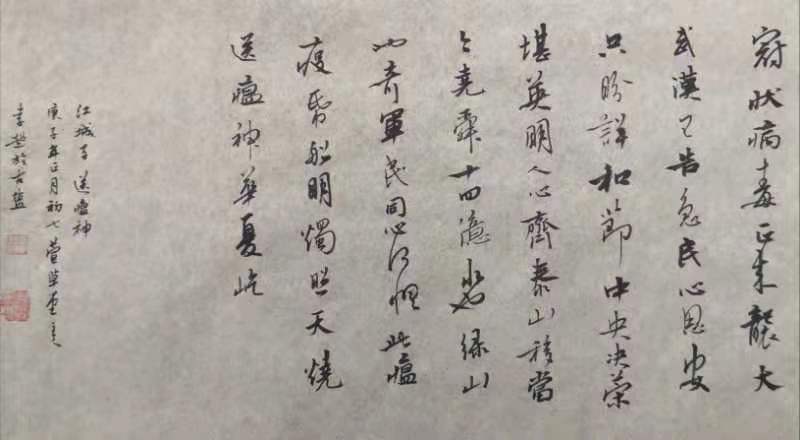 冠状病毒正来襲大
武漢已告急民心思安
只盼詳和節中央决策
堪英明人心齊泰山移當
今堯舜十四億水也绿山
也青軍民同心何惧此瘟
疫帋船明燭照天燒
送瘟神華夏屹
江城子 送瘟神
庚子年正月初七萱草堂主
李於古盐